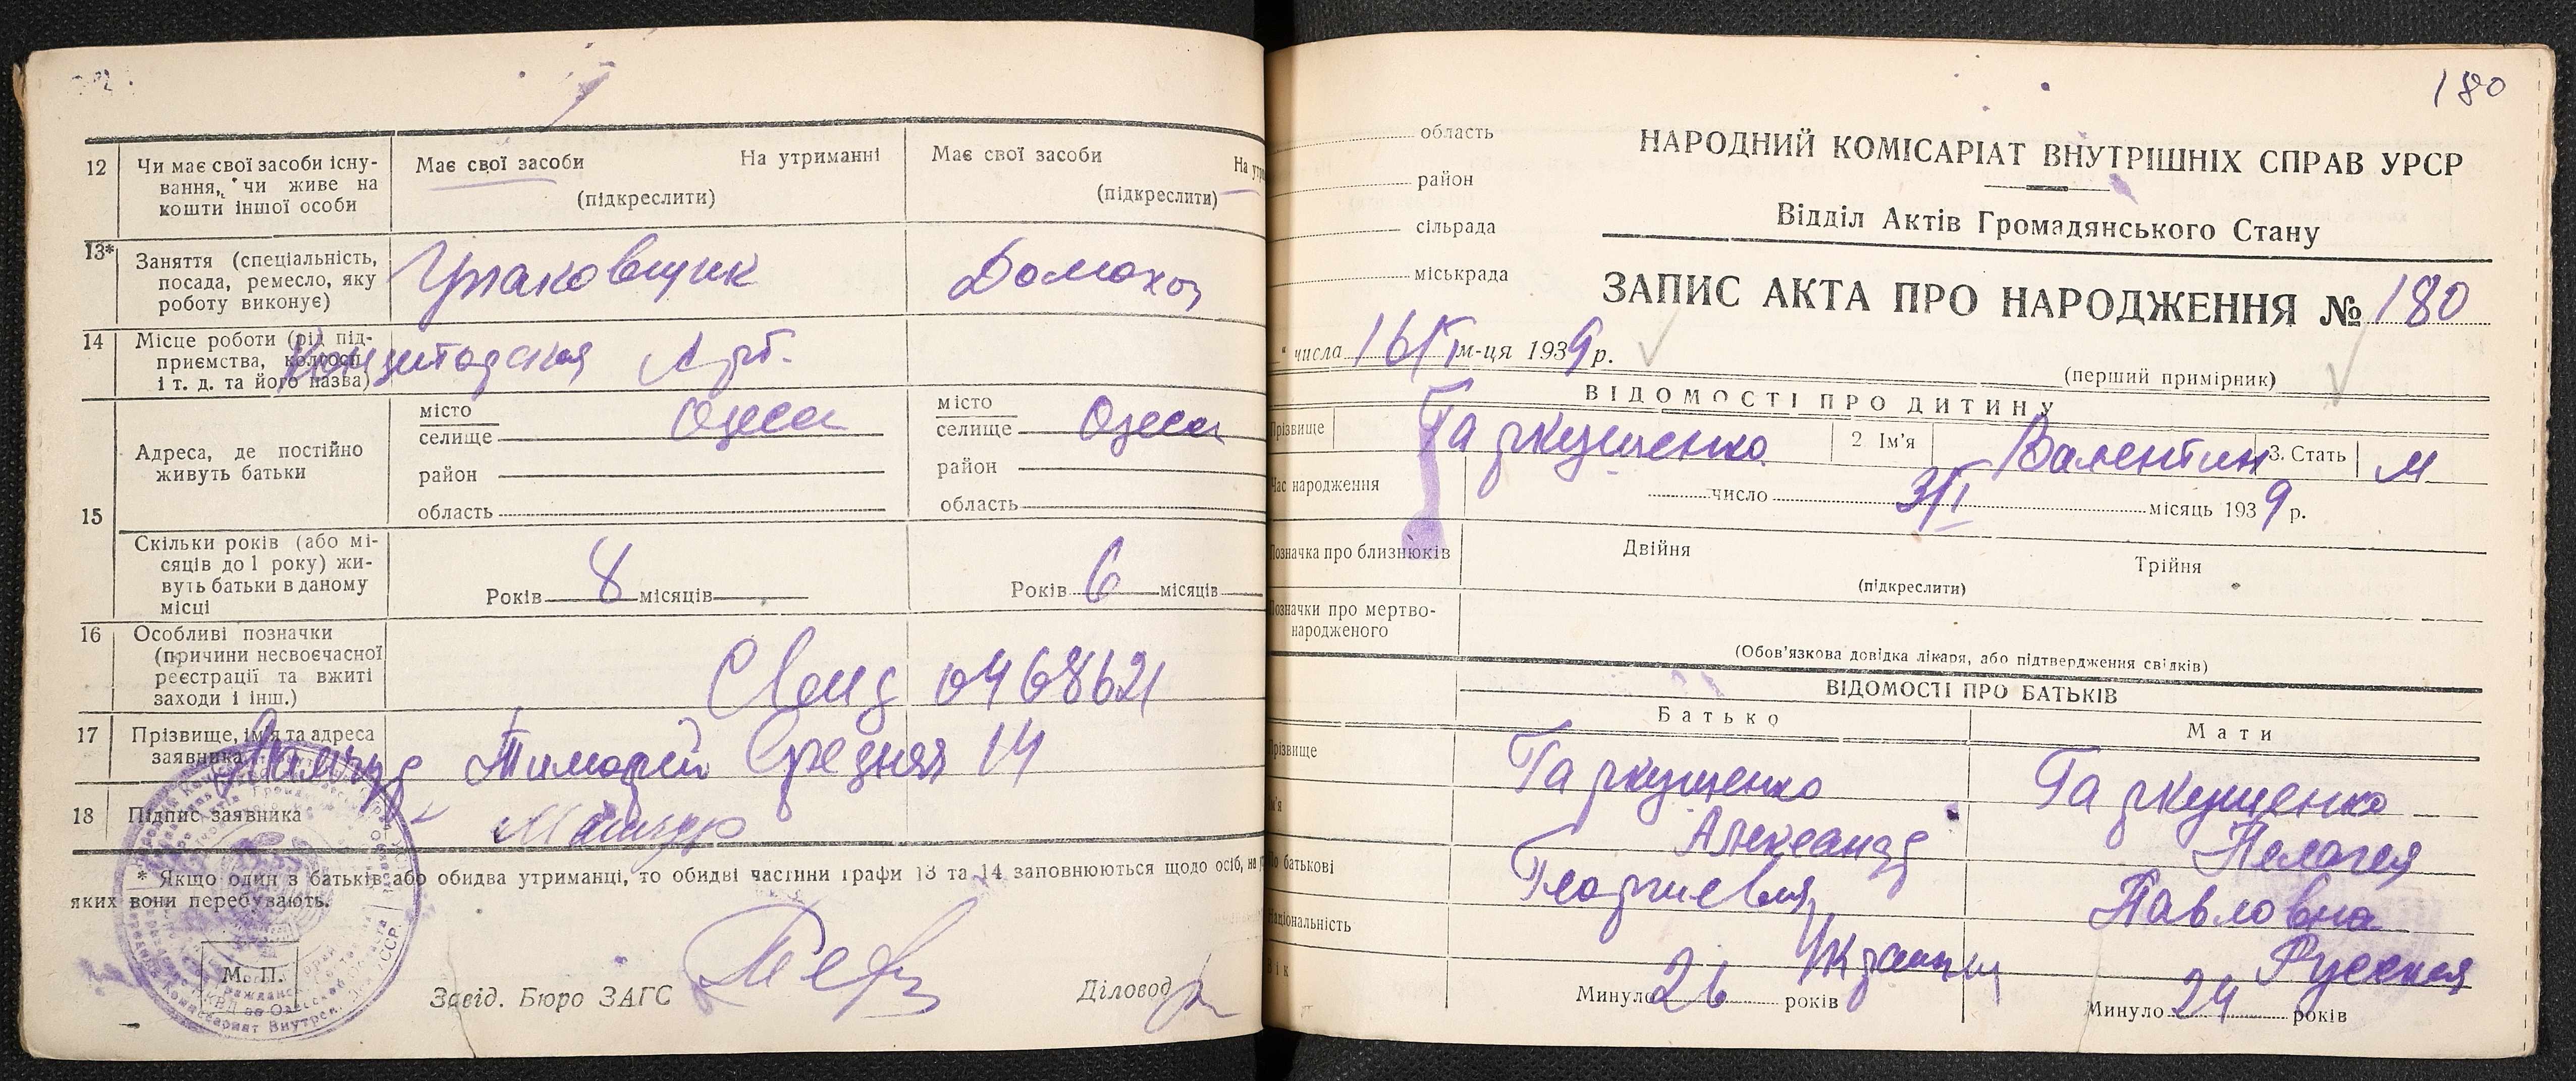 12 Чи має свої засоби існу-
вання, чи живе на
кошти іншої особи
Має свої засоби На утриманні
(підкреслити)
Має свої засоби На утр
(підкреслити)
13* Заняття (спеціальність,
посада, ремесло, яку
роботу виконує)
Упаковщик
Домохоз
14 Місце роботи (рід під-
приємства, колгосп
і т. д. та його назва)
Кондиторская Арт.
15
Адреса, де постійно
живуть батьки
місто Одеса
селище
район
область
місто Одеса
селище
район
область
Скільки років (або мі-
сяців до 1 року) жи-
вуть батьки в даному
місці
Років 8 місяців
Років 6 місяців
16 Особливі позначки
(причини несвоєчасної
реєстрації та вжиті
заходи і інш.)
0468621
17 Прізвище, ім'я та адреса
заявника
Тимофей Средняя 14
18 Підпис заявника
* Якщо один з батьків або обидва утриманці, то обидві частини графи 13 та 14 заповнюються щодо осіб, на
яких вони перебувають.
М. П.
Завід. Бюро ЗАГС
Діловод
180
область
район
сільрада
міськрада
НАРОДНИЙ КОМІСАРІАТ ВНУТРІШНІХ СПРАВ УРСР
Відділ Актів Громадянського Стану
ЗАПИС АКТА ПРО НАРОДЖЕННЯ № 180
" числа 16/I м-ця 1939 р.
(перший примірник)
ВІДОМОСТІ ПРО ДИТИНУ
Прізвище Гаркушенко 2 Ім'я Валентин 3. Стать М
Час народження число 3/I місяць 1939 р.
Позначка про близнюків Двійня Трійня
(підкреслити)
Позначки про мертво-
народженого
(Обов'язкова довідка лікаря, або підтвердження свідків)
ВІДОМОСТІ ПРО БАТЬКІВ
Батько Мати
Прізвище Гаркушенко Гаркушенко
Ім'я Александ Пелагея
По батькові Георгиевич Павловна
Національність Украинц Русская
Вік Минуло 26 років Минуло 24 років